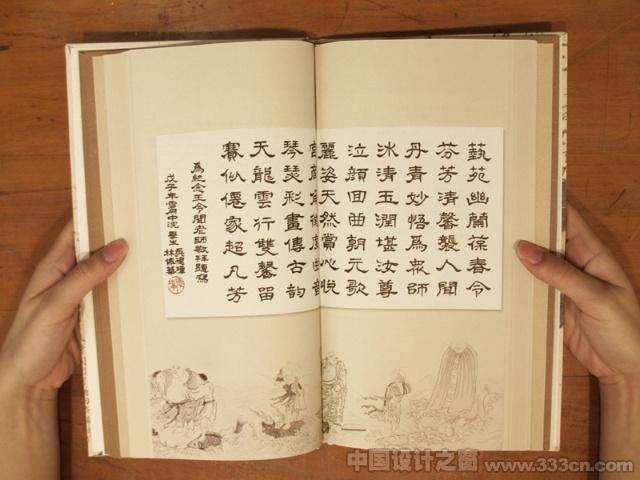 藝苑幽蘭葆春令
芬芳清馨襲人聞
丹青妙悟爲衆師
冰清玉潤堪汝尊
泣顔回曲朝元歌
麗姿天然賞心悅
宮商角徵
琴瑟彩畫傳古韵
天龍雲行雙馨留
賽似僊家超凡芳
爲紀念王令聞老師敬拜題寫
戊子年雪月中浣 學生
林儀
中国设计之窗 www.333cn.com